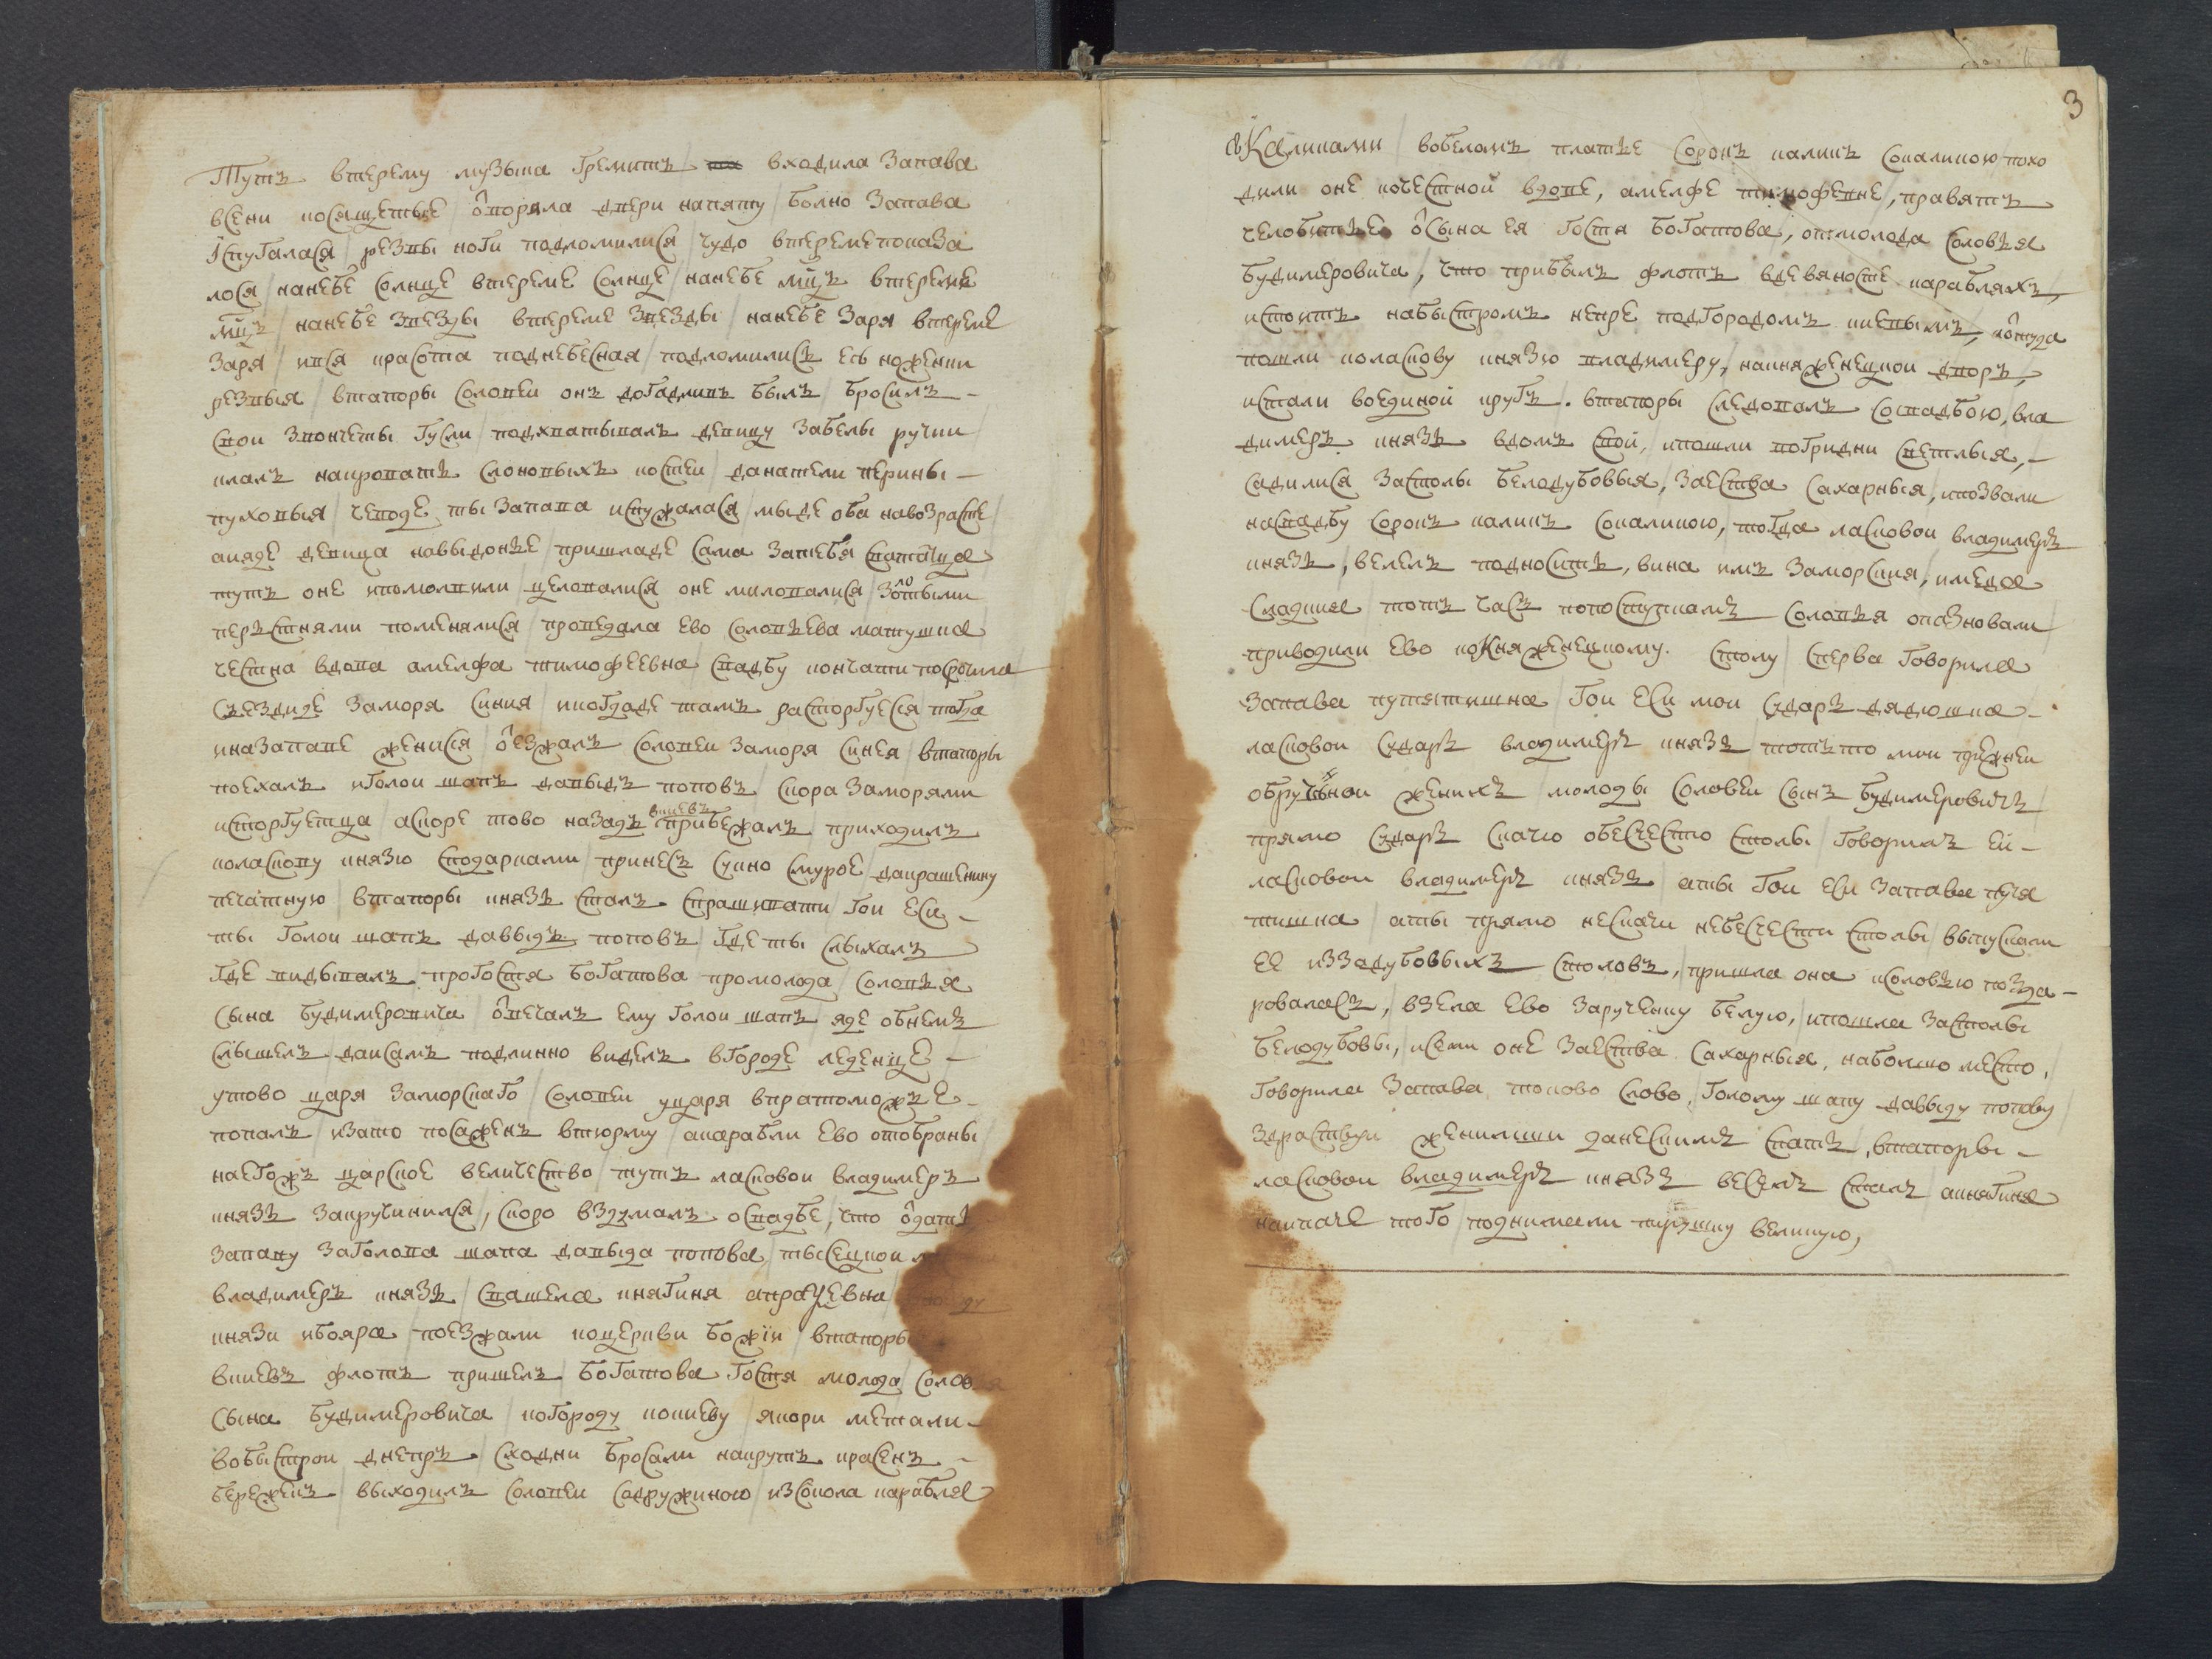 Тутъ втерему музыка гремитъ / входила Запава
всени косящетые / ôтворяла двери напяту / болно Запава
Iспугалася / резвы ноги подломилися / чудо втереме показа
лося / нанебе солнце втереме солнце / нанебе мц҃ъ втереме
мц҃ъ / нанебе звезды втереме звезды / нанебе заря втереме
заря / ився красота поднебесная / подломились ее ноженки
резвыя / втапоры соловеи онъ догадливъ былъ / бросилъ
свои звончеты гусли / подхватывалъ девицу забелы ручки
клалъ накровать слоновыхъ костеи / данатели перины
пуховыя / чеводе ты Запава испужалася / мыде оба навозрасте
аияде девица навыдонье / пришладе сама затебя свататца
тутъ оне ипомолвили / целовалися оне миловалися / золотыми
перьстнями поменялися / проведала ево соловьева матушка
честна вдова амелфа тимофеевна / свадбу кончати посрочила
съездиде заморя синия / икогдаде тамъ расторгуесся тогда
иназапаве женися / ôезжалъ соловеи заморя синея / втапоры
поехалъ иголои шапъ давыдъ поповъ / скора заморями
исторгуетца / аскоре тово назадъ вкиевъ прибежалъ / приходилъ
коласкову князю сподарками / принесъ сукно смурое / дакрашенину
печатную / втапоры князь сталъ спрашивати / гои еси
ты голои шапъ даввыдъ поповъ / где ты слыхалъ
где видывалъ / прогостя богатова промолода / соловья
сына будимеровича / ôвечалъ ему голои шапъ яде обнемъ
слышелъ / даисамъ подлинно виделъ / вгороде леденце
утово царя заморскаго / соловеи уцаря впратоможъе
попалъ / изато посаженъ втюрму / акарабли ево отобраны
наегожъ царское величество / тутъ ласковои владимеръ
князь закручинился, скоро вздумалъ освадбе, что ôдать
запаву заголова шапа давыда попова, тысецкои
владимеръ князь / свашела княгиня апраѯевна
князи ибояра / поезжали коцеркви божїи / втапоры
вкиевъ флотъ пришелъ / богатова гостя молода соловья
сына будимеровича / когороду кокиеву / якори метали
вобыстрои днепръ / сходни бросали накрутъ красенъ
бережекъ / выходилъ соловеи содружиною / изсокола карабля
3
иКаликами / вобеломъ платье сорокъ каликъ скаликою / похо
дили оне кочестной вдове, амелфе тимофевне, правятъ
челобитье ôсына ея гостя богатова, отмолода соловья
будимеровича, что прибылъ флотъ вдевяносте карабляхъ,
истоитъ набыстромъ непре подгородомъ киевымъ, аôтуда
пошли коласкову князю владимеру, накняженецкои дворъ,
истали воединой кругъ. втапоры следовалъ сосвадбою, вла
димеръ князь вдомъ свой, ипошли погридни светлыя,
садилися застолы белодубовыя, заества сахарныя, ипозвали
насвадбу сорокъ каликъ скаликою, тогда ласковои владимеръ
князь, велелъ подносить, вина имъ заморския, имеда
сладкиа / тотъ часъ попоступкамъ соловья опазновали
приводили ево коКняженецкому. столу / сперва говорила
запава путятишна / гои еси мои сударь дядюшка
ласковои сударь владимеръ князь / тотъто мои прежнеи
обрученои женихъ / молоды соловеи сынъ будимеровичъ
прямо сударь скачю обесчестю столы / говорилъ ей
ласковои владимеръ князь / аты гои еси запава путя
тишна / аты прямо нескачи небесчести столы / выпускали
ее иззадубовыхъ столовъ, пришла она ксоловью позда
ровалась, взела ево заручкику белую, ипошла застолы
белодубовы, исели оне заества сахарныя, наболшо место,
говорила запава таково слово, голому шапу даввыду попову
здраствуи женимши данескимъ спать, втапоры
ласковои владимеръ князь веселъ сталъ / акнягиня
наипаче того / поднимали пирушку великую,